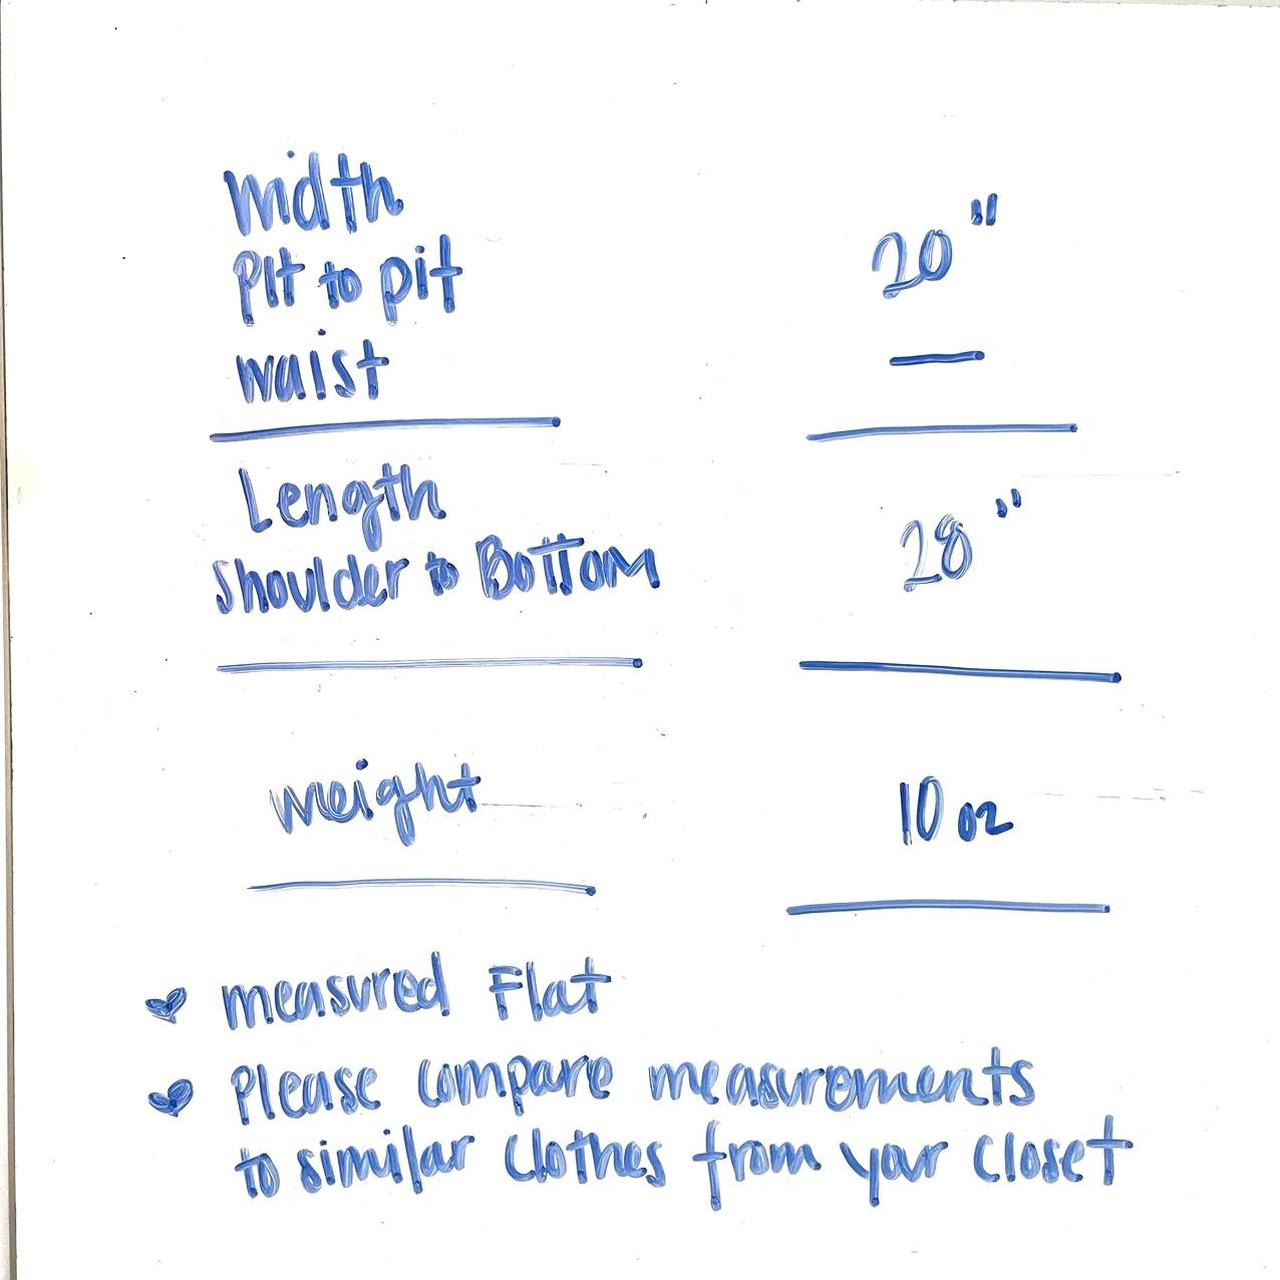 width
Pit to pit
20"
waist
—
Length
Shoulder to Bottom
28"
weight
10 oz
♥ measured Flat
♥ Please compare measurements
to similar clothes from your closet